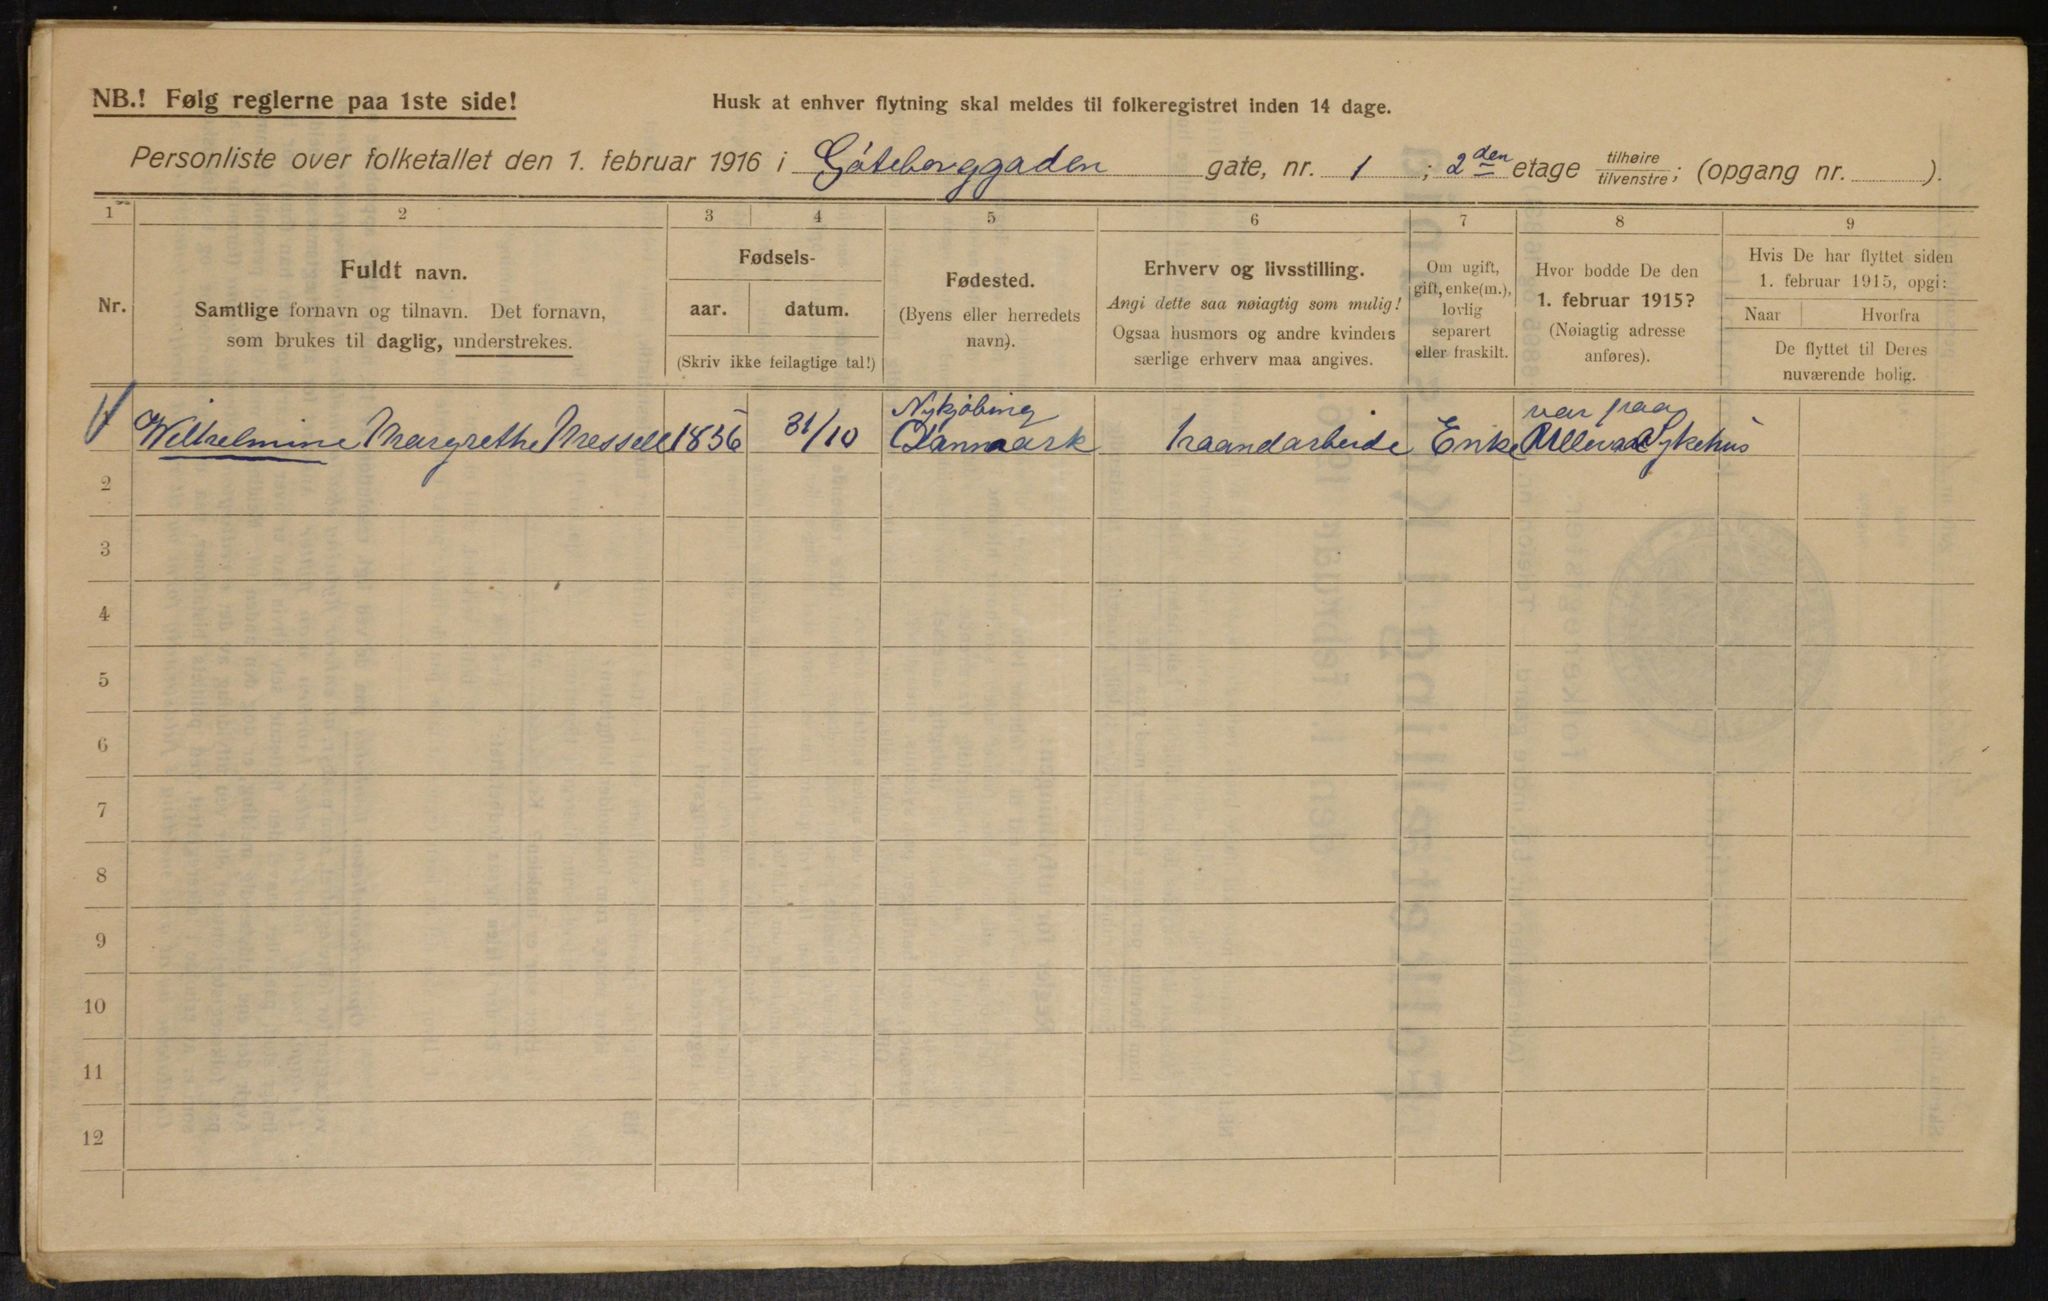 NB.! Følg reglerne paa 1ste side!
Husk at enhver flytning skal meldes til folkeregistret inden 14 dage.
Personliste over folketallet den 1. februar 1916 i Göteborggaden gate, nr. 1 ; 2den etage tilhøire/tilvenstre; (opgang nr. ).
1 2 3 4 5 6 7 8 9
Nr.
Fuldt navn.
Samtlige fornavn og tilnavn. Det fornavn,
som brukes til daglig, understrekes.
Fødsels-
aar. datum.
(Skriv ikke feilagtige tal!)
Fødested.
(Byens eller herredets
navn).
Erhverv og livsstilling.
Angi dette saa nøiagtig som mulig!
Ogsaa husmors og andre kvinders
særlige erhverv maa angives.
Om ugift,
gift, enke(m.),
lovlig
separert
eller fraskilt.
Hvor bodde De den
1. februar 1915?
(Nøiagtig adresse
anføres).
Hvis De har flyttet siden
1. februar 1915, opgi:
Naar Hvorfra
De flyttet til Deres
nuværende bolig.
Nykjøbing var paa
1 Wilhelmine Margrethe Messell 1856 31/10 Danmark haandarbeide Enke Ullevaal Sykehus
2
3
4
5
6
7
8
9
10
11
12